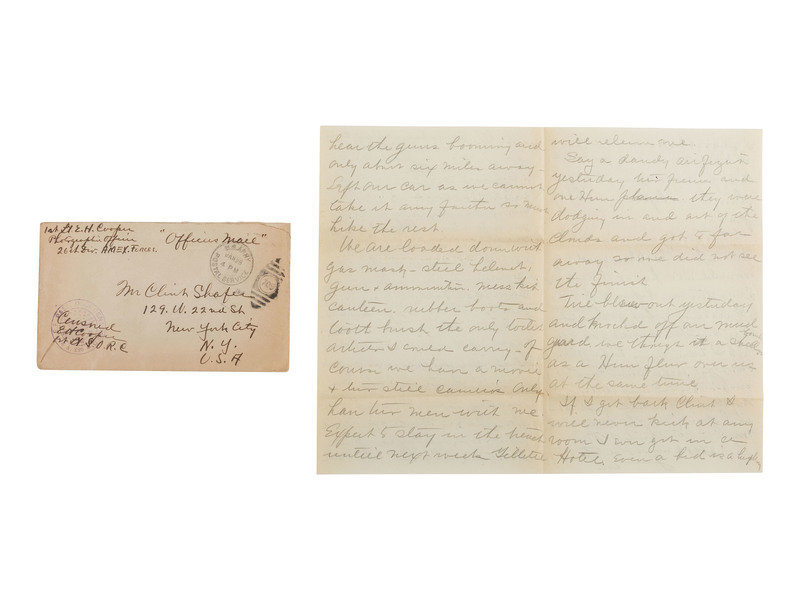 1st Lt E. H. Cooper
Photographic Officer
26th Div. Am. Ex. Forces.
"Officers Mail"
U.S. ARMY
POSTAL SERVICE
MAR
Mr Clint Shafer
129. W. 22nd St
New York City
N. Y.
U.S.A
Censored
E H Cooper
1st Lt S. O. R. C
hear the guns booming and
only about six miles away -
Left our car as we cannot
take it any further so must
hike the rest.
We are loaded down with
gas mask - steel helmet,
guns & ammunition. mess kit
canteen. rubber boots and
tooth brush the only toilet
articles I could carry - of
course we have a movie
& two still cameras Only
han two men with me
Expect to stay in the trench
until next week Gillette
will relieve me.
Say a dandy air fight
yesterday and
one Hun plane they were
dodging in and out of the
clouds and got to far
away so we did not see
the finish
Tire blew out yesterday
and knocked off our mud
guard we thought it a shell
as a Hun flew over us
at the same time
If I get back Clint I
will never kick at any
room I ever get in a
Hotel. Even a bed is a